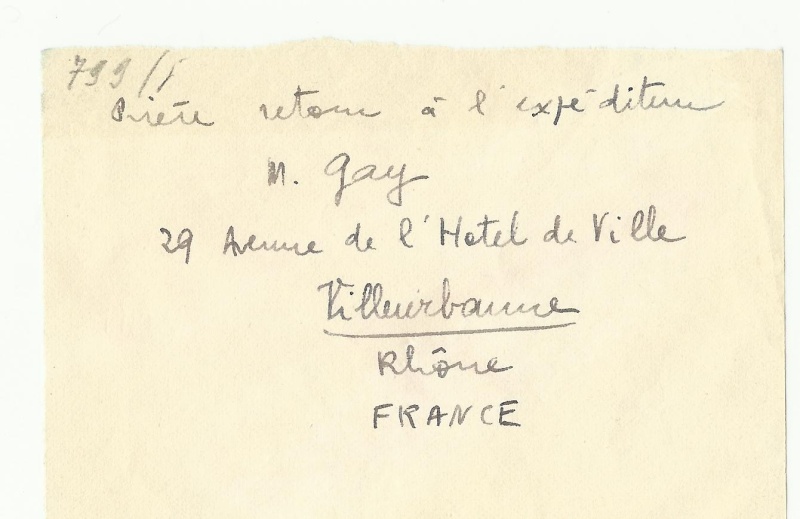 799/1
Prière retour à l'expéditeur
M. Gay
29 Avenue de l'Hotel de Ville
Villeurbanne
Rhône
FRANCE